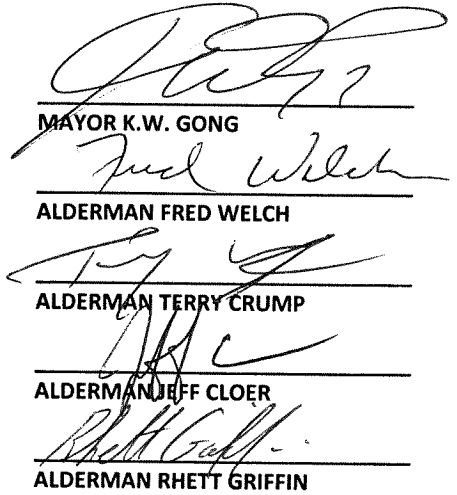 MAYOR K.W. GONG
Fred Welch
ALDERMAN FRED WELCH
ALDERMAN TERRY CRUMP
ALDERMAN JEFF CLOER
Rhett Griffin
ALDERMAN RHETT GRIFFIN